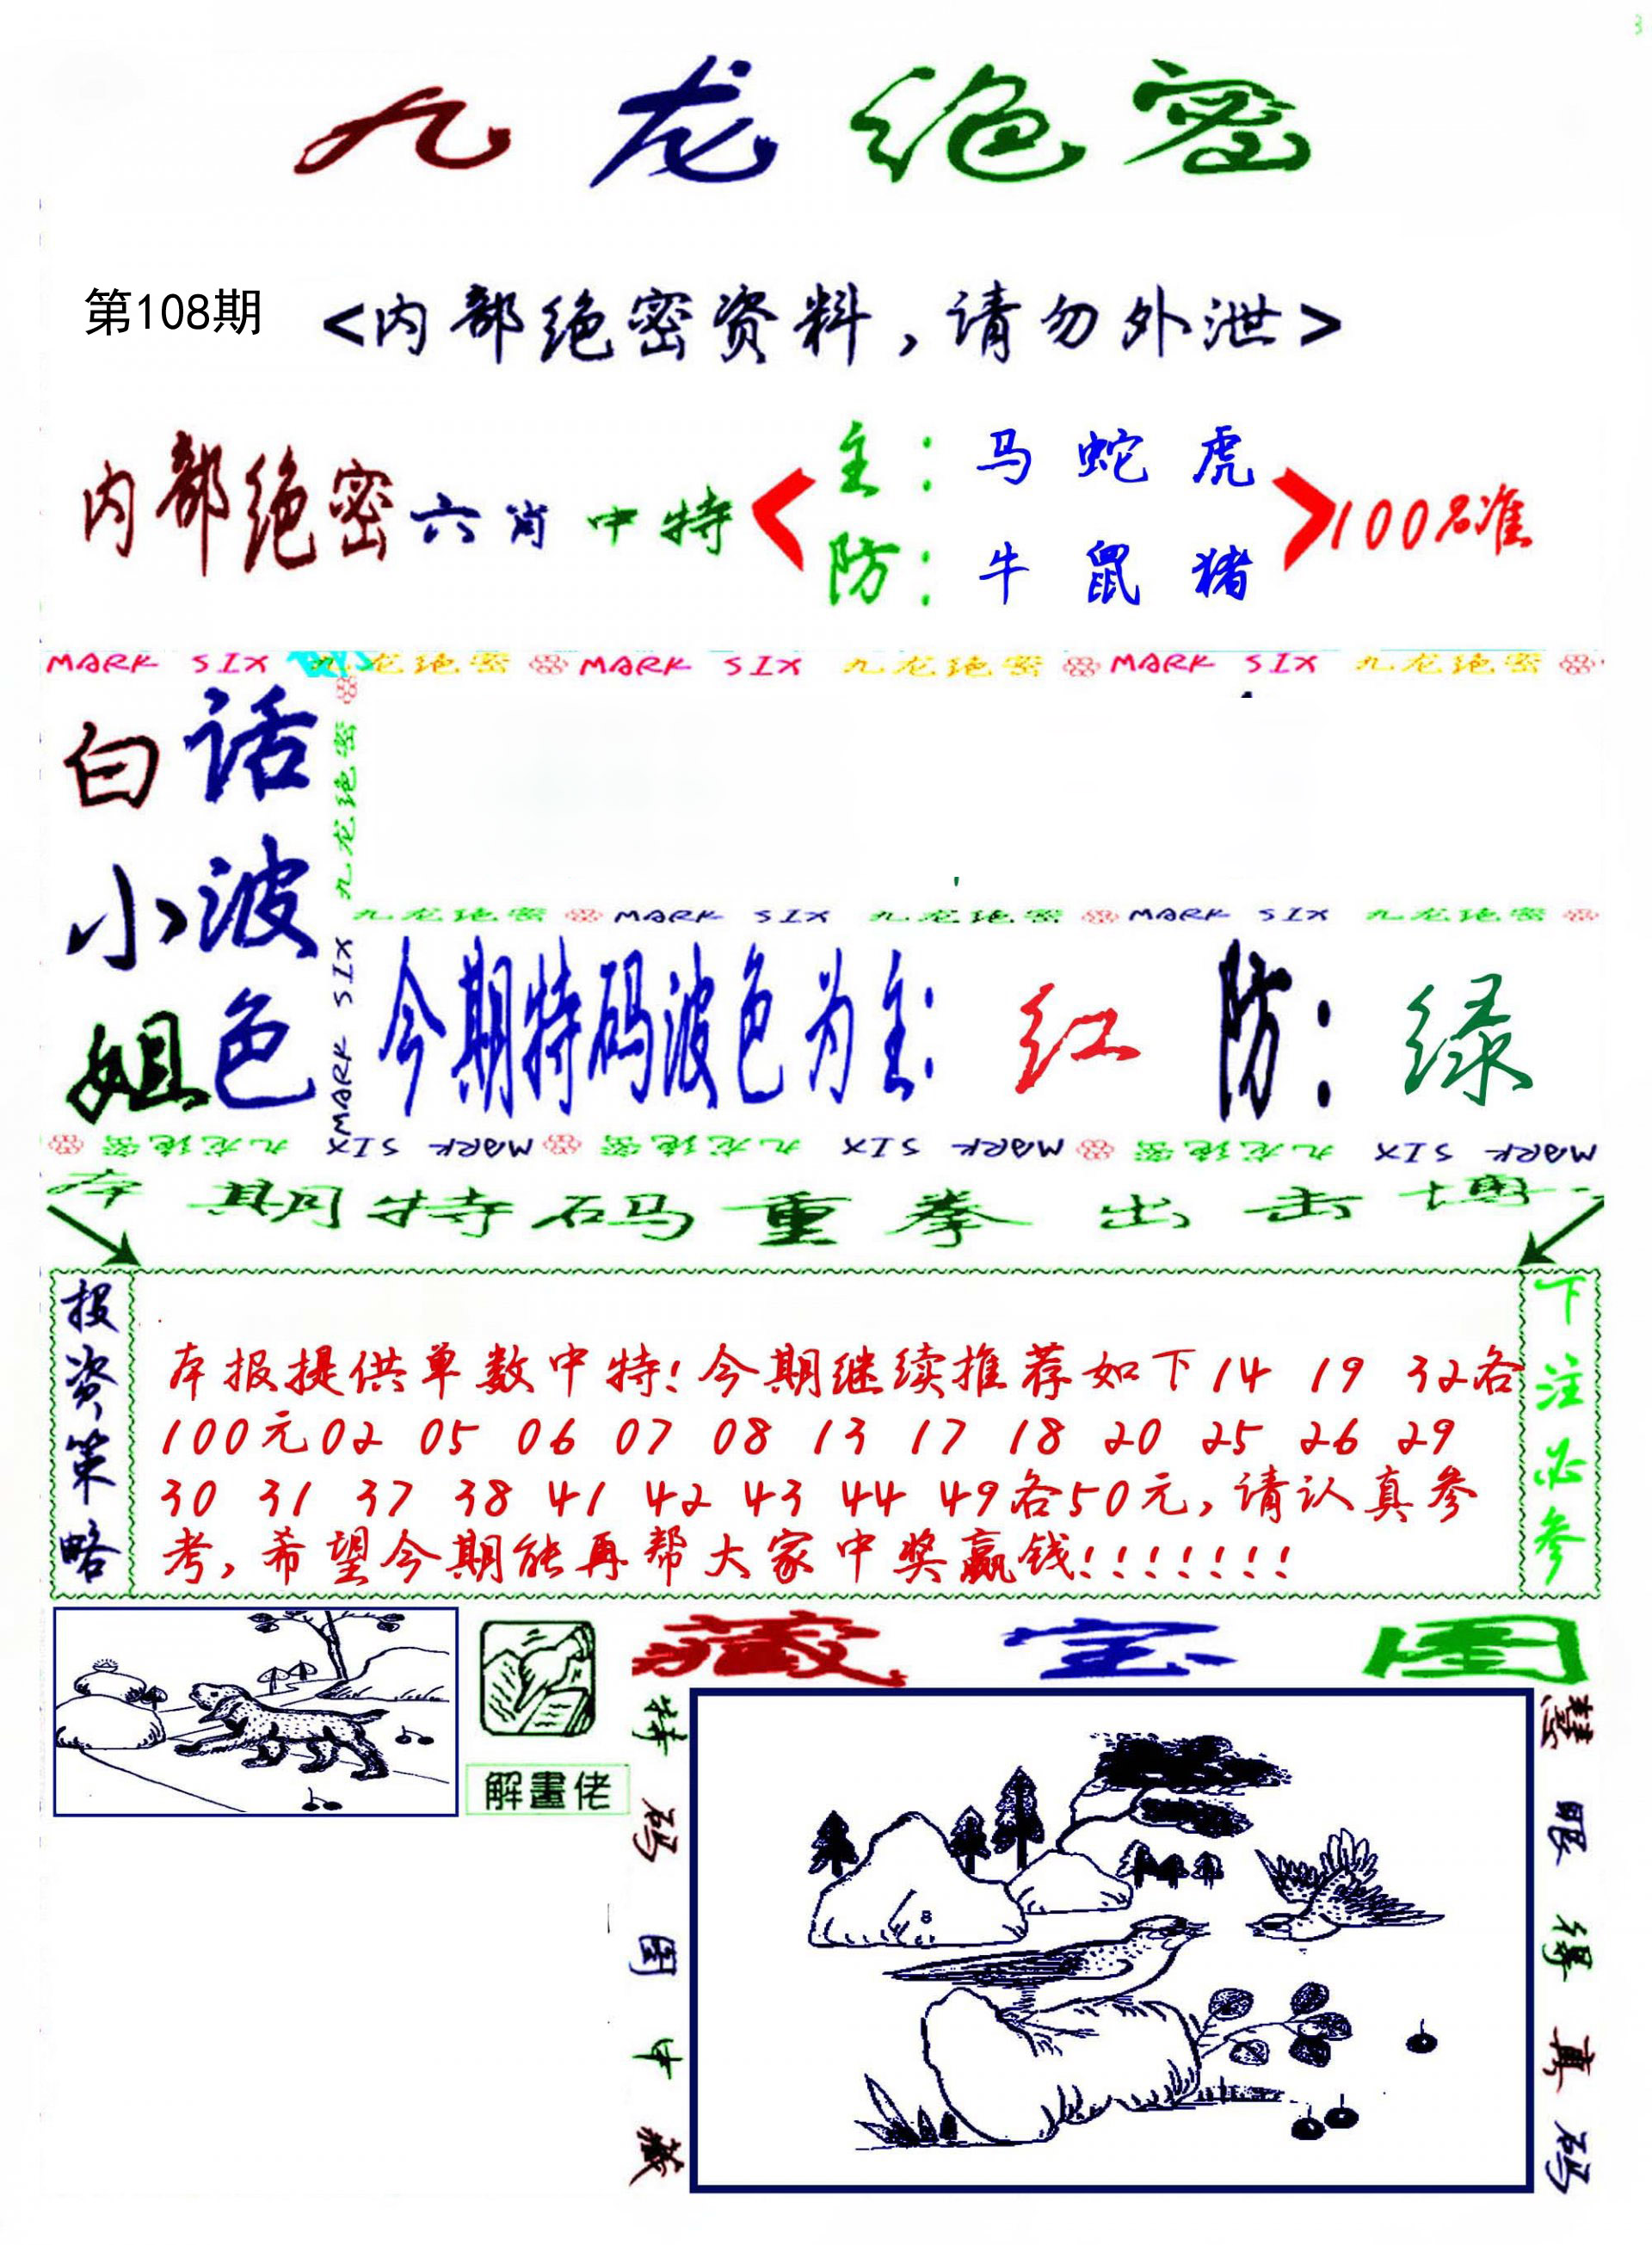 九龙绝密
第108期 <内部绝密资料,请勿外泄>
内部绝密六肖中特
主:马 蛇 虎
防:牛 鼠 猪
100%准
MARK SIX 九龙绝密 MARK SIX 九龙绝密 MARK SIX 九龙绝密
白话
小波
姐色
九龙绝密
MARK SIX
九龙绝密 MARK SIX 九龙绝密 MARK SIX 九龙绝密
今期特码波色为主: 红 防: 绿
九龙绝密 MARK SIX 九龙绝密 MARK SIX 九龙绝密 MARK SIX
本期特码重拳出击博
投资策略
本报提供单数中特!今期继续推荐如下14 19 32各
100元02 05 06 07 08 13 17 18 20 25 26 29
30 31 37 38 41 42 43 44 49各50元,请认真参
考,希望今期能再帮大家中奖赢钱!!!!!!!
下注必参
解畫佬
藏宝图
特码图中藏
慧眼得真码